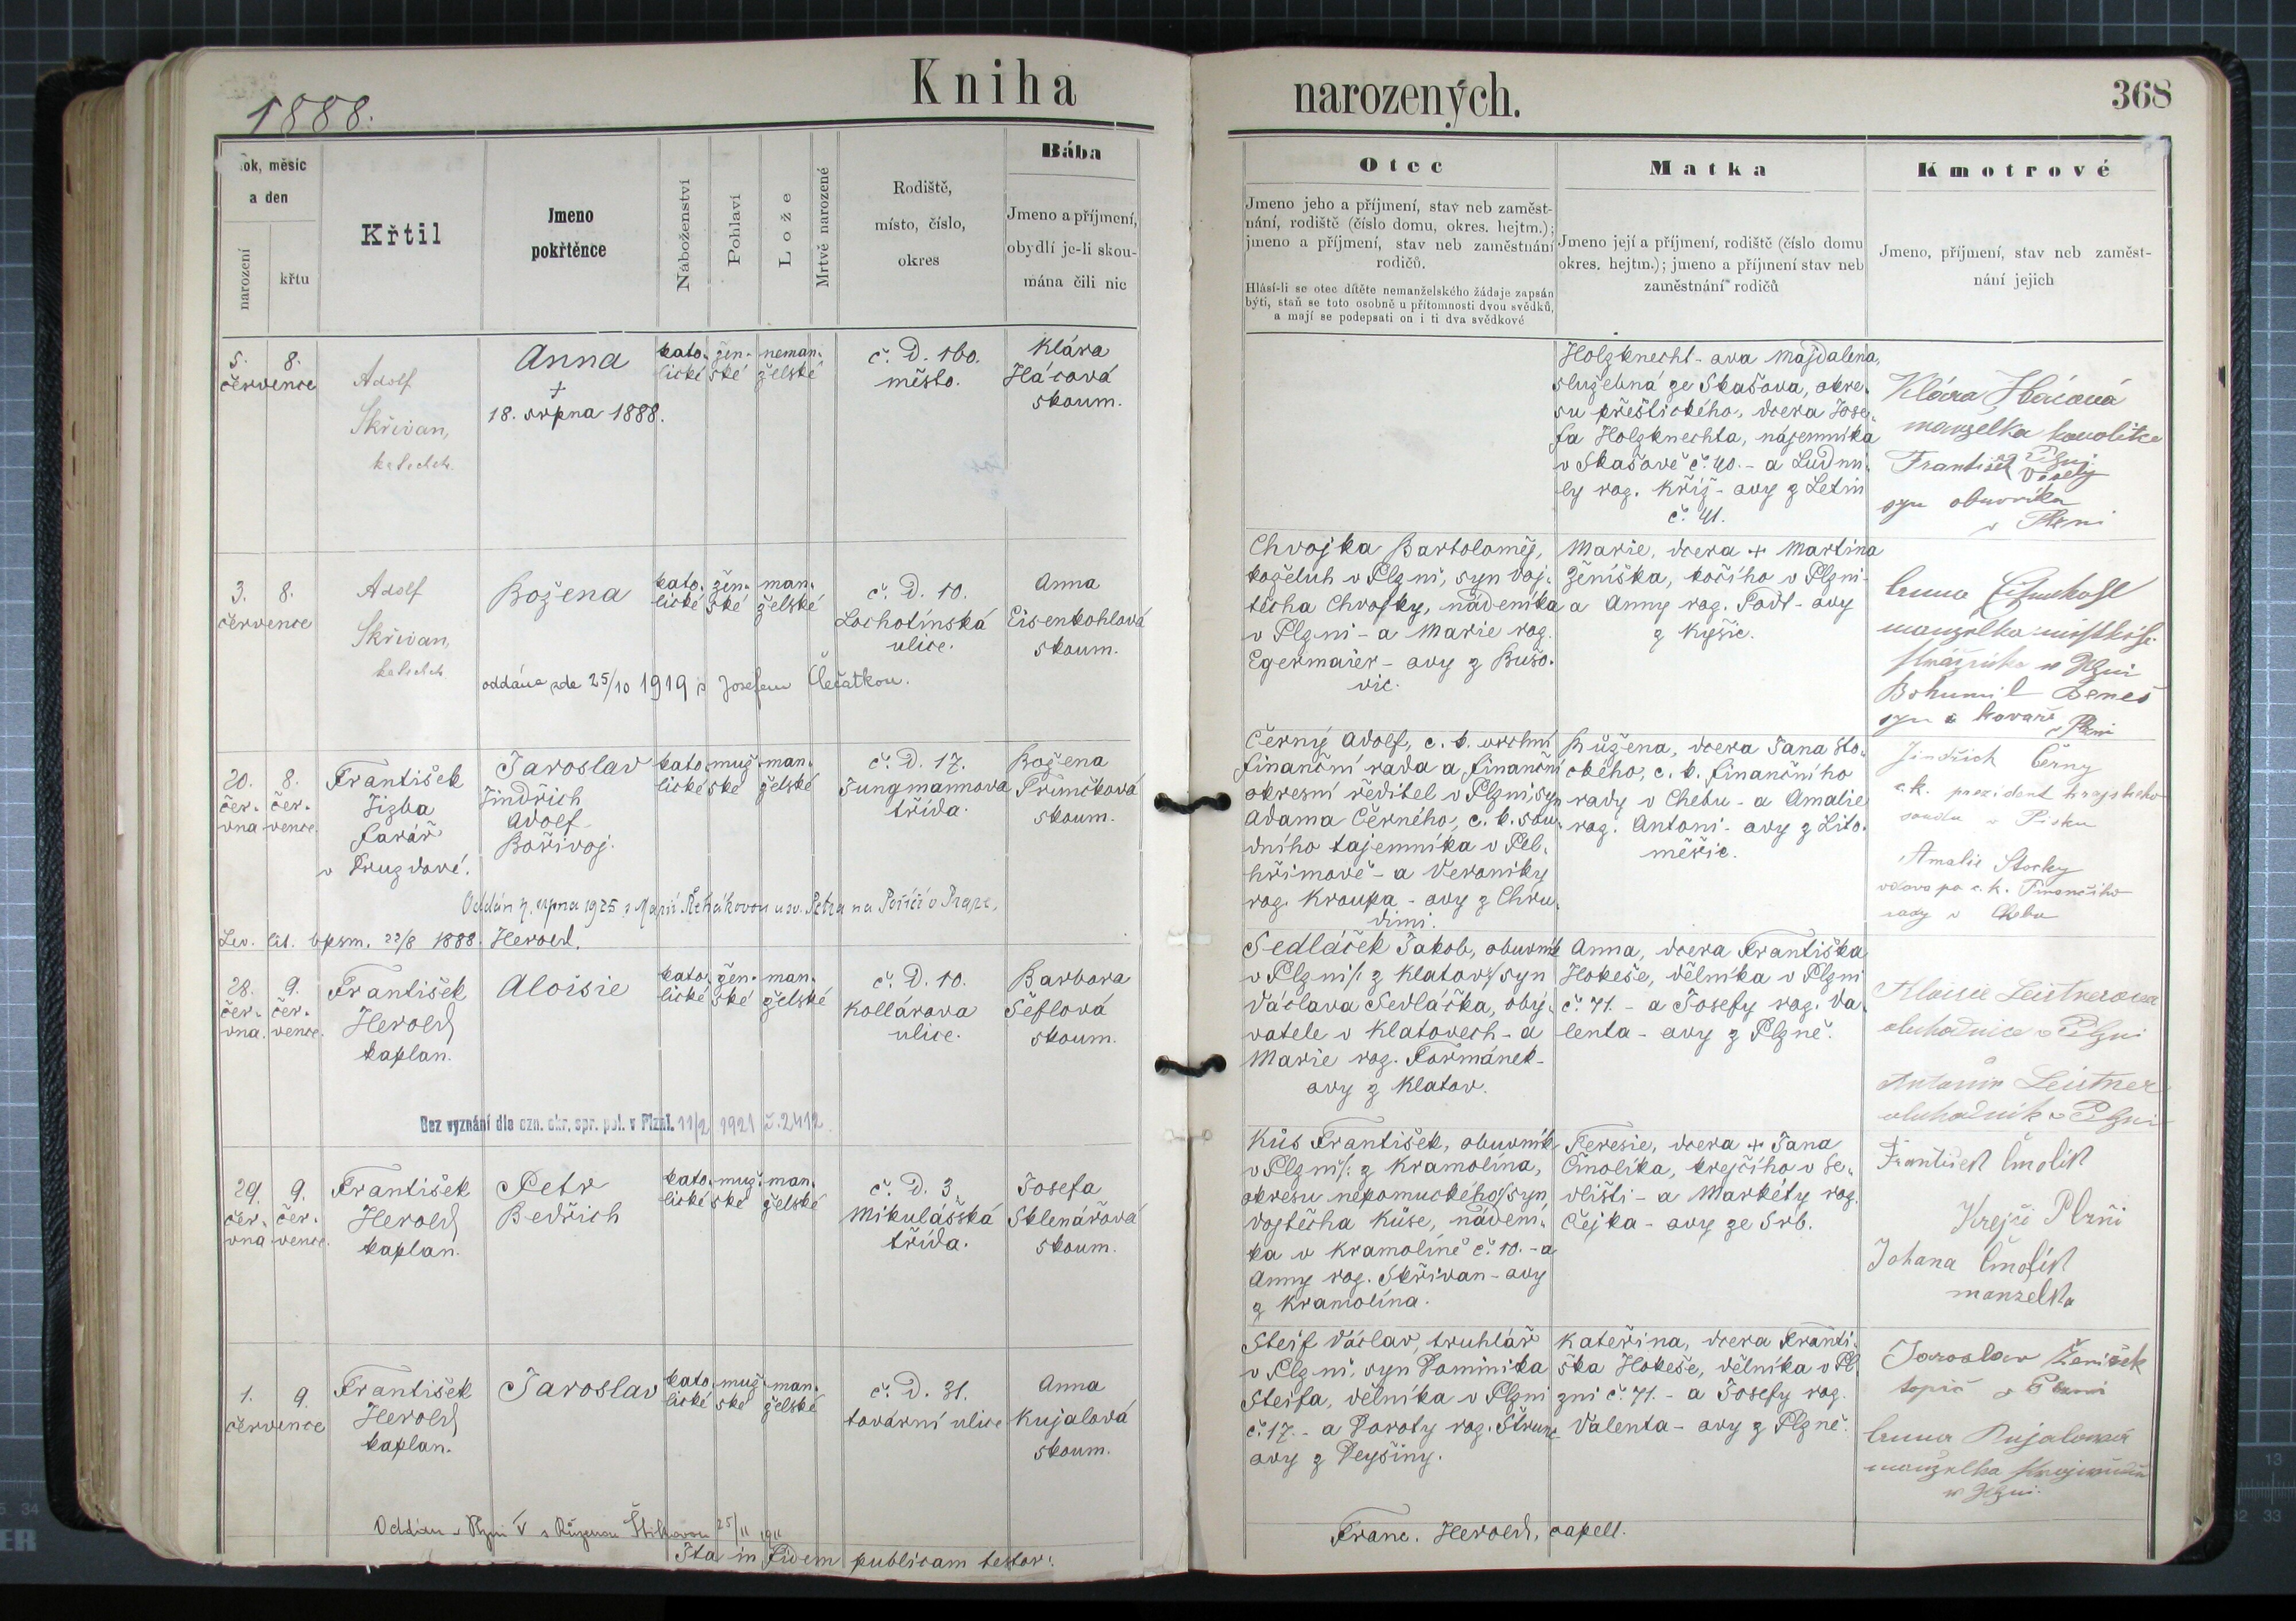 Kniha
narozených.
368
1888.
Rok, měsíc
a den
narození
křtu
Křtil
Jmeno
pokřtěnce
Náboženství
Pohlaví
Lože
Mrtvě narozené
Rodiště,
místo, číslo,
okres
Bába
Jmeno a příjmení,
obydlí je-li skou-
mána čili nic
Otec
Jmeno jeho a příjmení, stav neb zaměst-
nání, rodiště (číslo domu, okres. hejtm.);
jmeno a příjmení, stav neb zaměstnání
rodičů.
Hlásí-li se otec dítěte nemanželského žádaje zapsán
býti, staň se toto osobně u přítomnosti dvou svědků,
a mají se podepsati on i ti dva svědkové
Matka
Jmeno její a příjmení, rodiště (číslo domu
okres. hejtm.); jmeno a příjmení stav neb
zaměstnání rodičů
Kmotrové
Jmeno, příjmení, stav neb zaměst-
nání jejich
5. 8.
července
Adolf
Skřivan,
katechet.
Anna
+
18. srpna 1888.
kato-
lické
žen-
ské
neman-
želské
č. D. 160.
město.
Klára
Hácová
skoum.
Holzknecht-ova Majdalena,
služebná ze Skašova, okre-
su přeštického, dcera Jose-
fa Holzknechta, nájemníka
v Skašově č. 40. - a Ludmi-
ly roz. Kříž-ovy z Letin
č. 41.
Klára Hácová
manželka
František Veselý
syn obuvníka
v Plzni
3. 8.
července
Adolf
Skřivan,
katechet.
Božena
kato-
lické
žen-
ské
man-
želské
č. D. 10.
Lochotínská
ulice.
Anna
Eisenkohlová
skoum.
oddána zde 25/10 1919 s Josefem
Chvojka Bartoloměj,
koželuh v Plzni, syn Voj-
těcha Chvojky, nádeníka
v Plzni - a Marie roz.
Egermaier-ovy z Bušo-
vic.
Marie, dcera + Martina
Ženíška, kočího v Plzni
a Anny roz. Podl-ovy
z Kyšic.
Anna Eisenkohl
manželka
v Plzni
Bohumil Beneš
syn kovaře v Plzni
20. 8.
čer- čer-
vna vence.
František
Jizba
farář
v Druzdově.
Jaroslav
Jindřich
Adolf
Bořivoj.
kato-
lické
muž-
ské
man-
želské
č. D. 17.
Jungmannova
třída.
Božena
Průmčková
skoum.
Oddán 4. srpna 1925 s Marií Řehákovou u sv. Petra na Poříčí v Praze.
Lev. lit. bpsm. 22/8 1888. Herold.
Černý Adolf, c. k. vrchní
finanční rada a finanční
okresní ředitel v Plzni, syn
Adama Černého, c. k. sou-
dního tajemníka v Pel-
hřimově - a Veroniky
roz. Kroupa-ovy z Chru-
dimi.
Růžena, dcera Jana Sto-
ckého, c. k. finančního
rady v Chebu - a Amalie
roz. Antoni-ovy z Lito-
měřic.
Jindřich Černy
c.k. prezident krajského
soudu v Písku
Amalie Stocky
vdova po c.k. Finančího
rady v Chebu
28. 9.
čer- čer-
vna. vence.
František
Herold
kaplan.
Aloisie
kato-
lické
žen-
ské
man-
želské
č. D. 10.
Kollárova
ulice.
Barbora
Šeflová
skoum.
Bez vyznání dle ozn. okr. spr. pol. v Plzni. 11/2 1921 č. 2412.
Sedláček Jakob, obuvník
v Plzni /: z Klatov :/ syn
Václava Sedláčka, oby-
vatele v Klatovech - a
Marie roz. Formánek-
ovy z Klatov.
Anna, dcera Františka
Hokeše, dělníka v Plzni
č. 71. - a Josefy roz. Va-
lenta-ovy z Plzně.
Aloisie Leistnerova
obchodnice v Plzni
a
Antonín Leistner
obchodník v Plzni
29. 9.
čer- čer-
vna vence.
František
Herold
kaplan.
Petr
Bedřich
kato-
lické
muž-
ské
man-
želské
č. D. 3
Mikulášská
třída.
Josefa
Sklenářová
skoum.
Kůs František, obuvník
v Plzni /: z Kramolína,
okresu nepomuckého :/ syn
Vojtěcha Kůse, nádení-
ka v Kramolíně č. 10. - a
Anny roz. Skřivan-ovy
z Kramolína.
Teresie, dcera + Jana
Čmolíka, krejčího v Se-
dlišti - a Markéty roz.
Čejka-ovy ze Srb.
František Čmolík
Krejčí Plzni
Johana Čmolík
manzelka
1. 9.
července
František
Herold
kaplan.
Jaroslav
kato-
lické
muž-
ské
man-
želské
č. D. 31.
tovární ulice
Anna
Kujalová
skoum.
Oddán v Plzni V s Růženou 25/11 1911
Steif Václav, truhlář
v Plzni, syn Dominika
Steifa, dělníka v Plzni
č. 17. - a Doroty roz. Štrunc-
ovy z Deyšiny.
Kateřina, dcera Franti-
ška Hokeše, dělníka v Pl-
zni č. 71. - a Josefy roz.
Valenta-ovy z Plzně.
Jaroslav Ženíšek
topič v Plzni
Anna Kujalová
manželka
v Plzni.
Ita in fidem publicam testor:
Franc. Herold, capell.